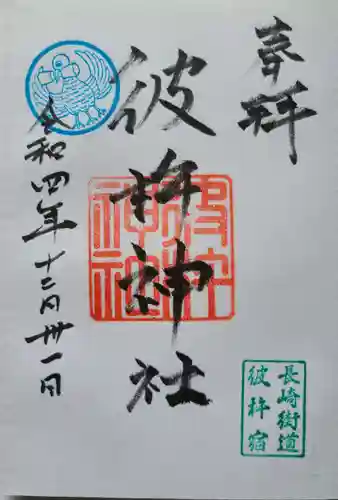 奉拝
彼杵神社
令和四年十二月卅一日
彼杵神社
長崎街道
彼杵宿